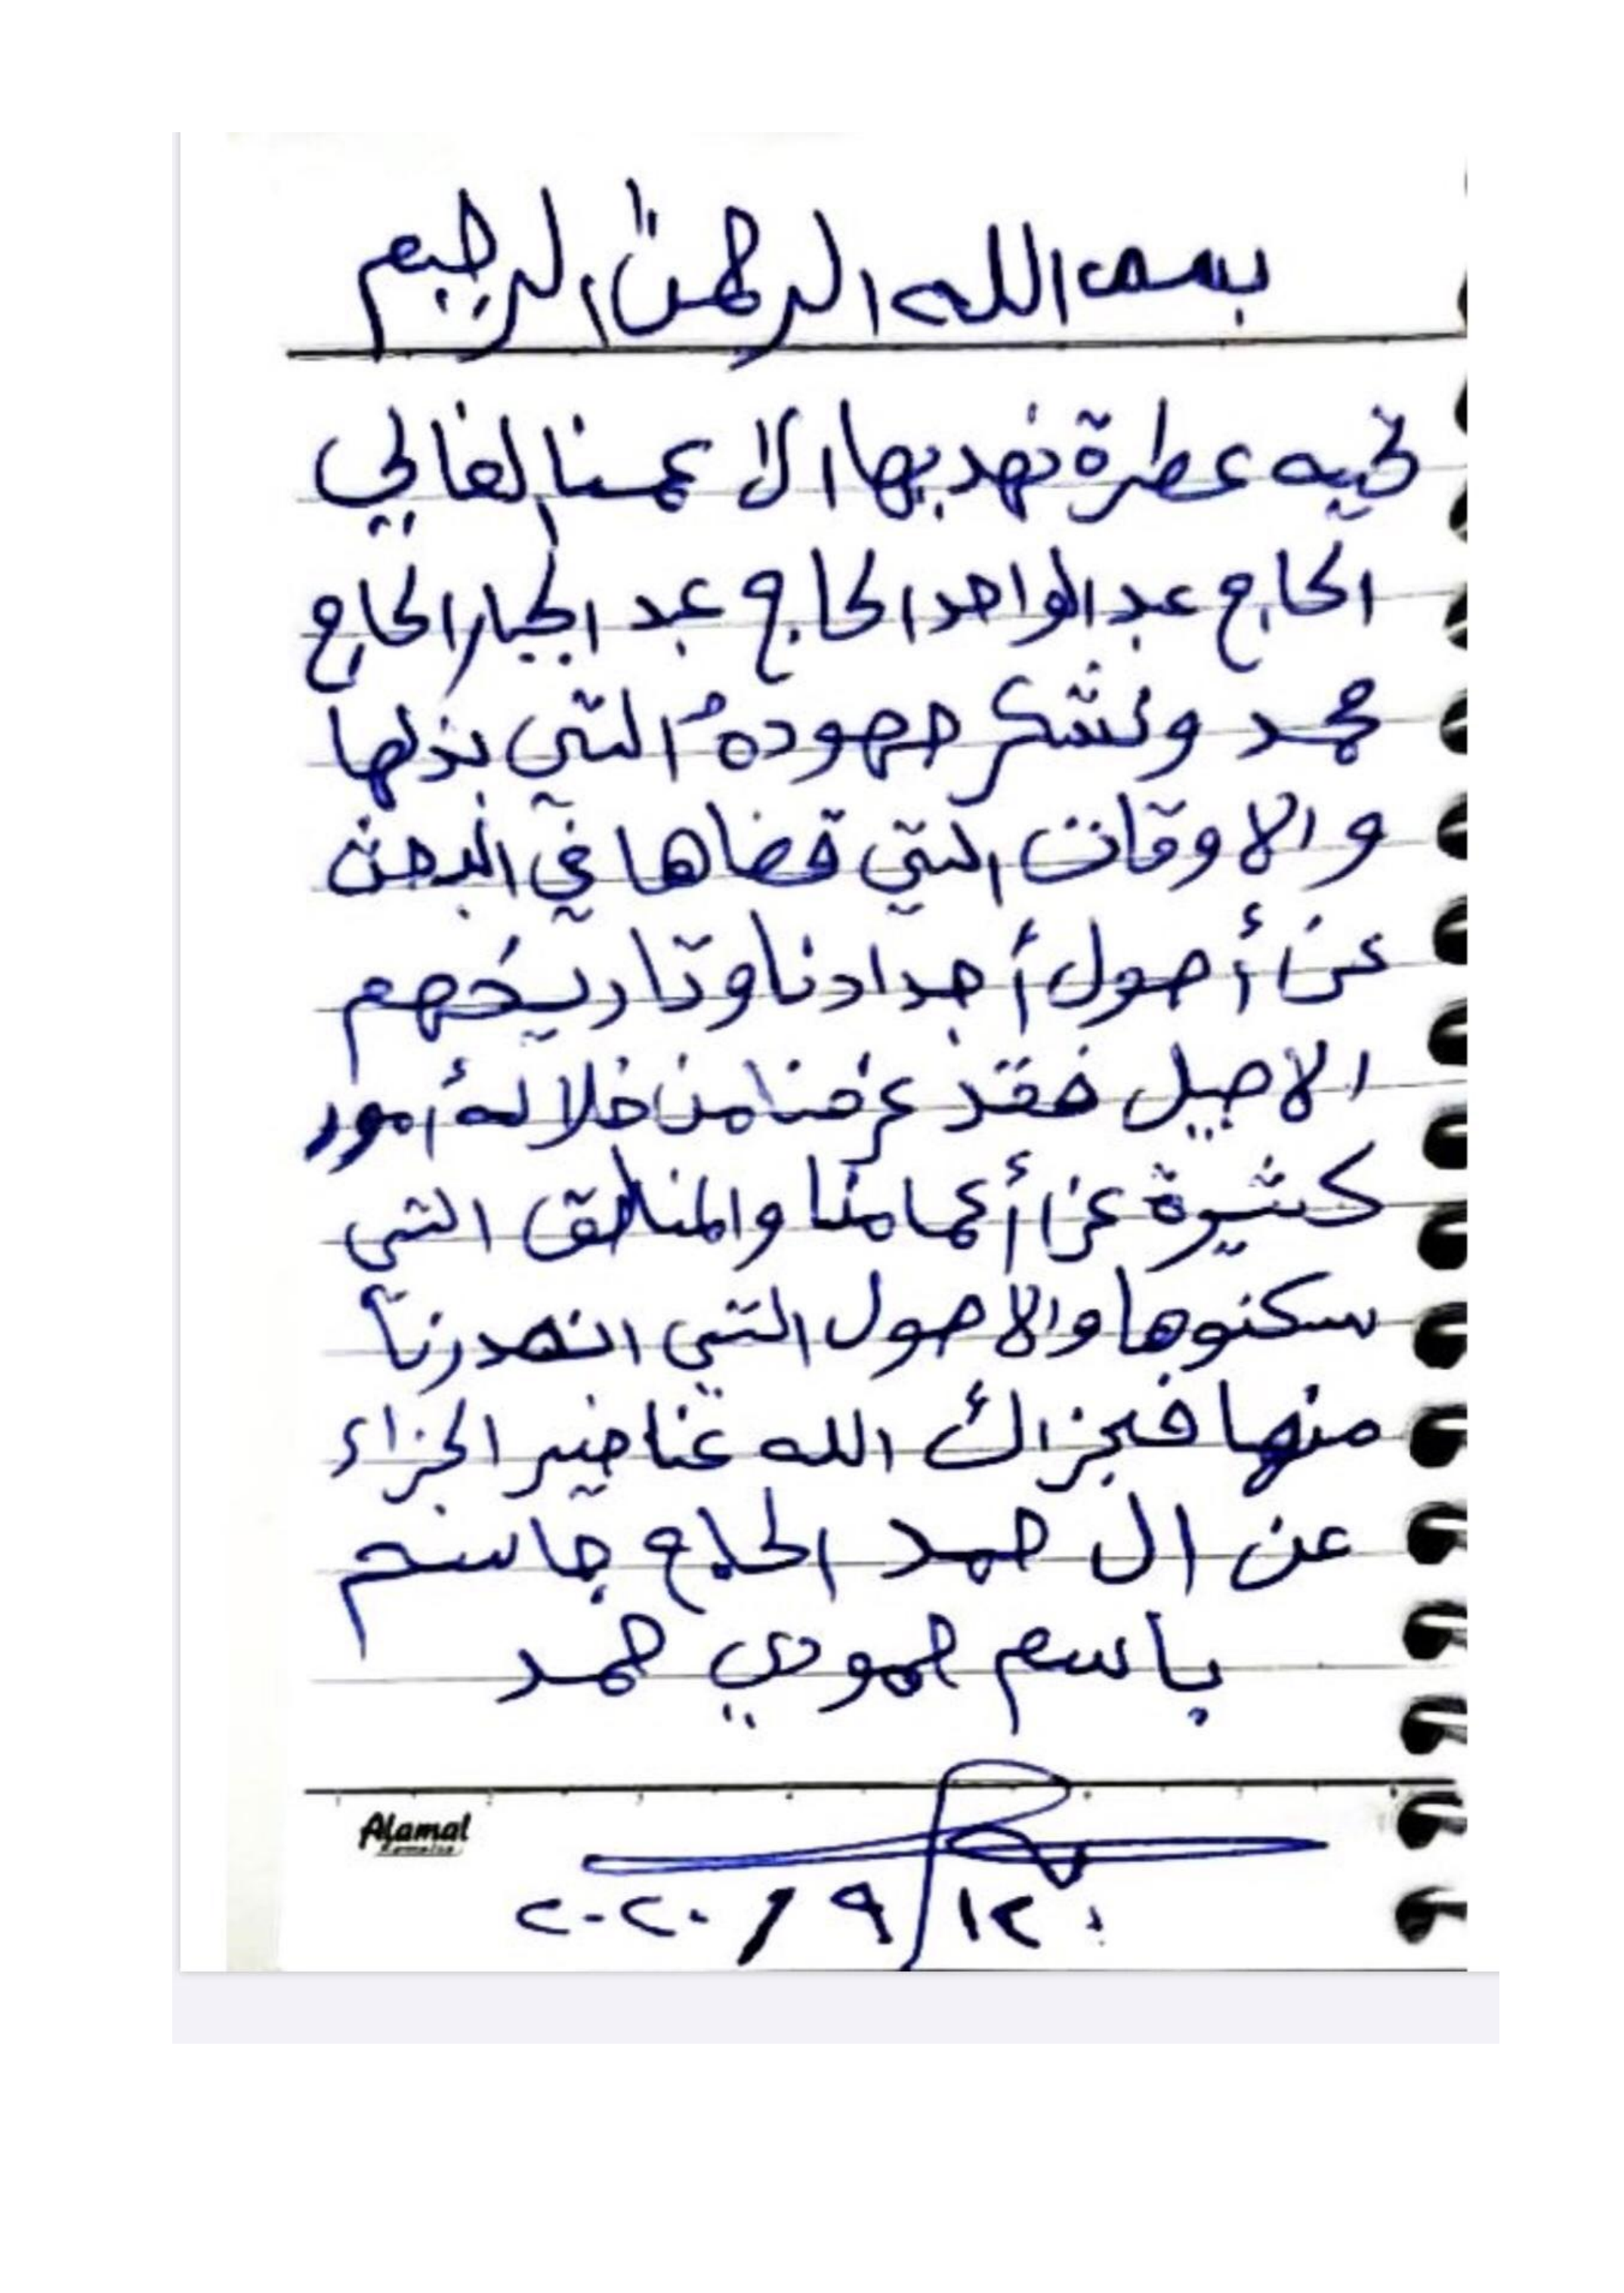 بسم الله الرحمن الرحيم
تحيه عطرة نهديها الا عمنا الغالي
الحاج عبد الواحد الحاج عبد الجبار الحاج
محمد ونشكر جهودهُ التي بذلها
والاوقات التي قضاها في البحث
عن أصول أجدادنا وتاريخهم
الاصيل فقد عرفنا من خلاله أمور
كثيرة عن أعمامنا والمناطق التي
سكنوها والاصول التي انحدرنا
منها فجزاك الله عنا خير الجزاء
عن ال حمد الحاج جاسم
باسم حمودي حمد
Alamal
١٢ / ٩ / ٢٠٢٠